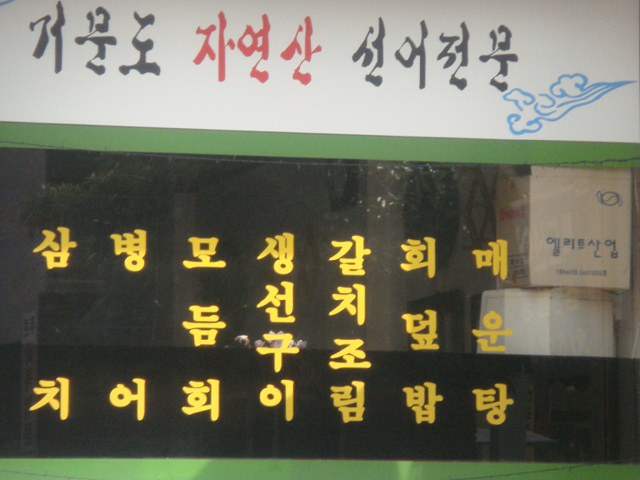 거문도 자연산 선어전문
삼치
병어
모듬회
생선구이
갈치조림
회덮밥
매운탕
엘리트산업